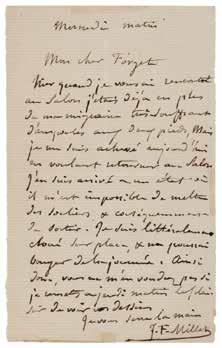 Mercredi matin
Mon cher Forget
Hier quand je vous ai rencontré
au Salon j'étais déja en plus
de ma migraine très souffrant
d'ampoules aux deux pieds. Mais
je me suis achevé aujourd'hui
en voulant retourner au Salon
J'en suis arrivé a un état où
il m'est impossible de mettre
des souliers & conséquemment
de sortir. Je suis littéralement
cloué sur place, & ne pouvais
bouger de la journée. Ainsi
donc, vous ne m'en voudrez pas si
je remets a jeudi matin le plaisir
de vous voir
Je vous serre la main
J. F. Millet